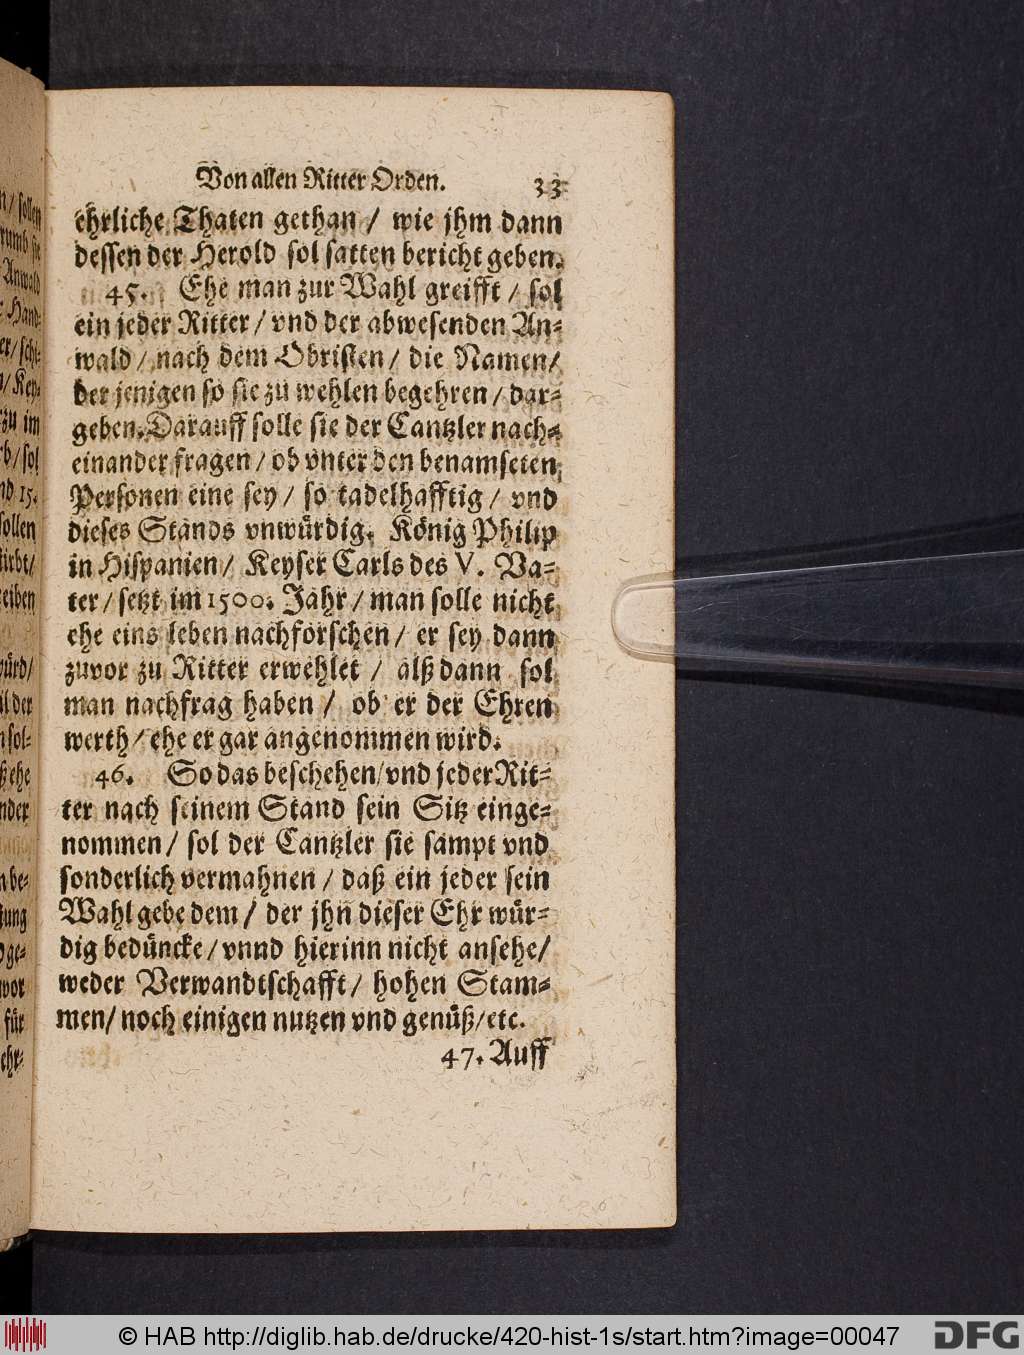 Von allen Ritter Orden. 33
ehrliche Thaten gethan / wie jhm dann
dessen der Herold sol satten bericht geben.
45. Ehe man zur Wahl greifft / sol
ein jeder Ritter / vnd der abwesenden An-
wald / nach dem Obristen / die Namen /
der jenigen so sie zu wehlen begehren / dar-
geben. Darauff solle sie der Cantzler nach-
einander fragen / ob vnter den benamseten
Personen eine sey / so tadelhafftig / vnd
dieses Stands vnwürdig. König Philip
in Hispanien / Keyser Carls des V. Va-
ter / setzt im 1500. Jahr / man solle nicht
ehe eins leben nachforschen / er sey dann
zuvor zu Ritter erwehlet / alß dann sol
man nachfrag haben / ob er der Ehren
werth / ehe er gar angenommen wird.
46. So das beschehen / vnd jeder Rit-
ter nach seinem Stand sein Sitz einge-
nommen / sol der Cantzler sie sampt vnd
sonderlich vermahnen / daß ein jeder sein
Wahl gebe dem / der jhn dieser Ehr wür-
dig bedüncke / vnnd hierinn nicht ansehe /
weder Verwandtschafft / hohen Stam-
men / noch einigen nutzen vnd genüß / etc.
47. Auff
© HAB http://diglib.hab.de/drucke/420-hist-1s/start.htm?image=00047
DFG